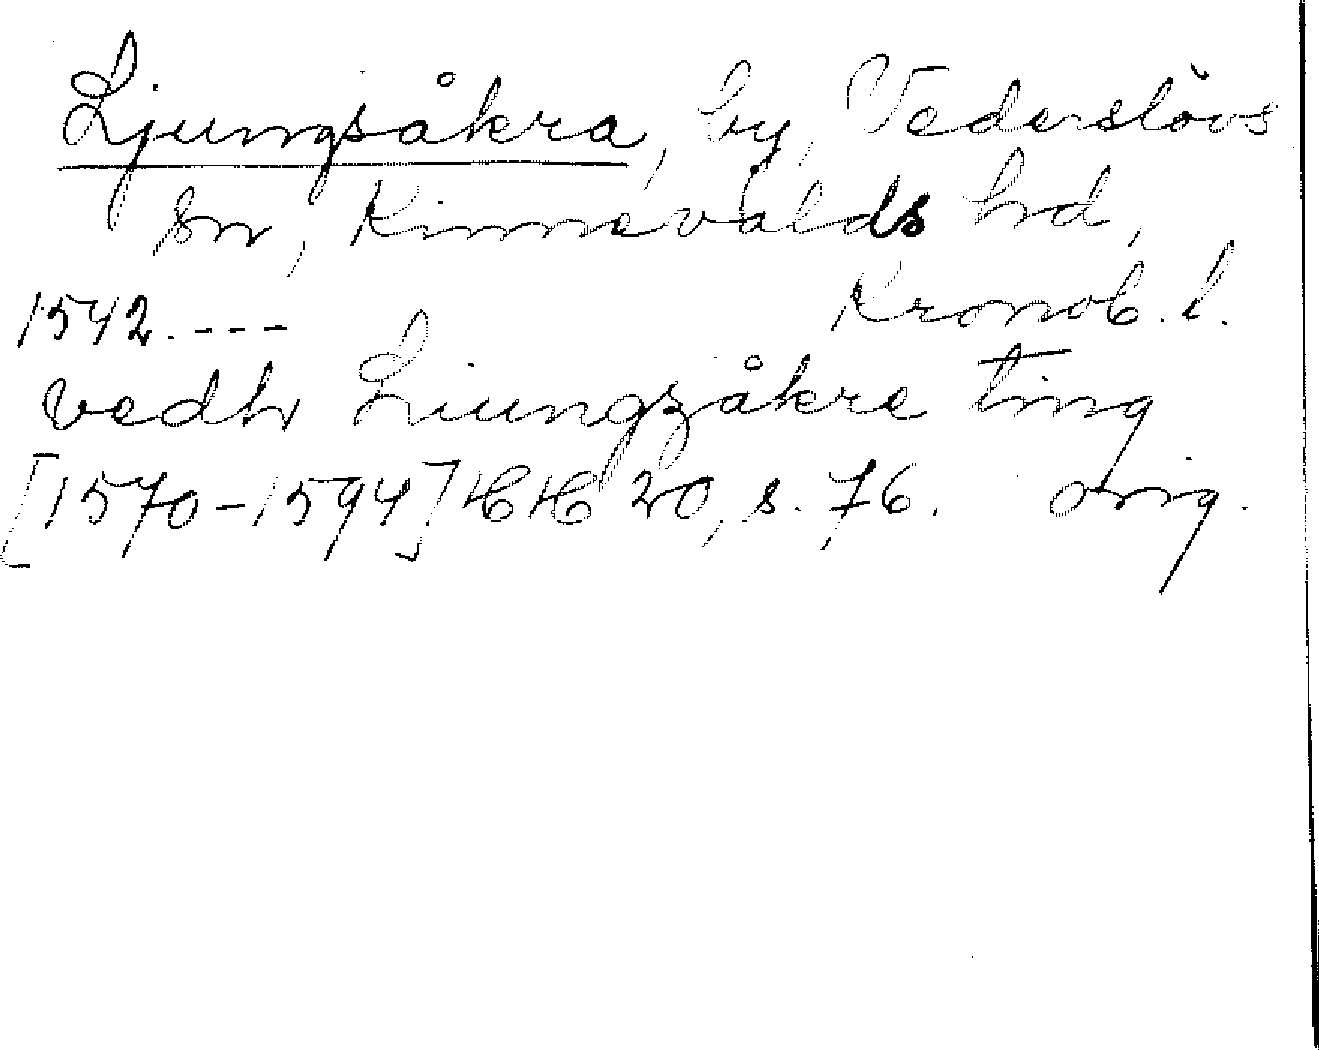 Ljungsåkra, by, Vederslövs
sn, Kinnevalds hd,
Kronob. l.
1542. ---
vedh Liungzåkre ting
[1570-1594] HH 20, s. 76. orig.